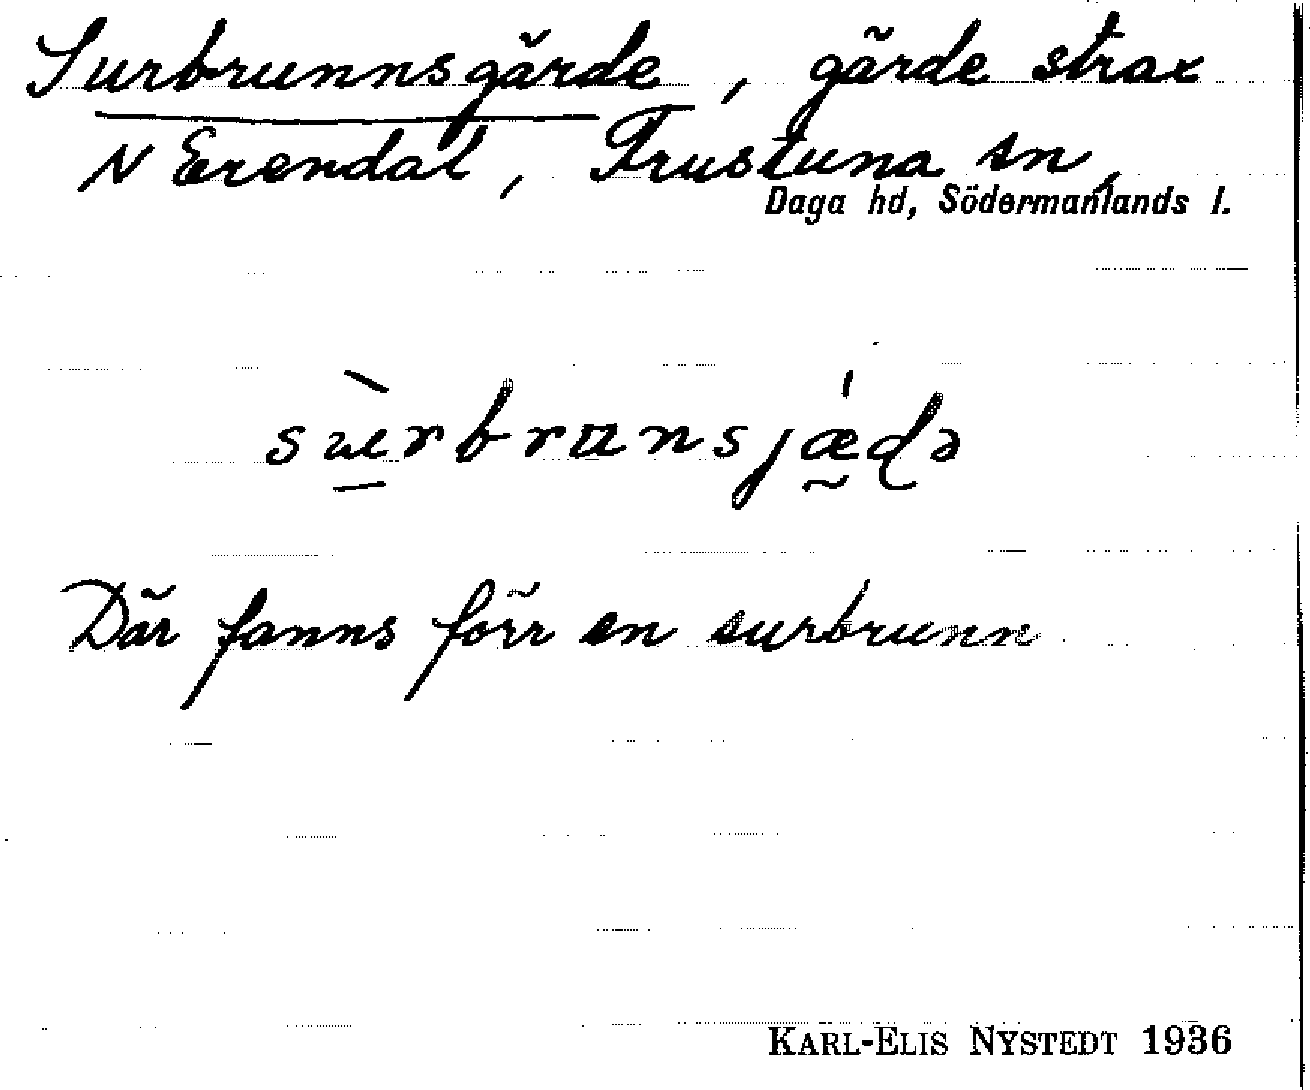 Surbrunnsgärde, gärde strax
N Erendal, Frustuna sn,
Daga hd, Södermanlands l.
Där fanns förr en surbrunn
KARL-ELIS NYSTEDT 1936